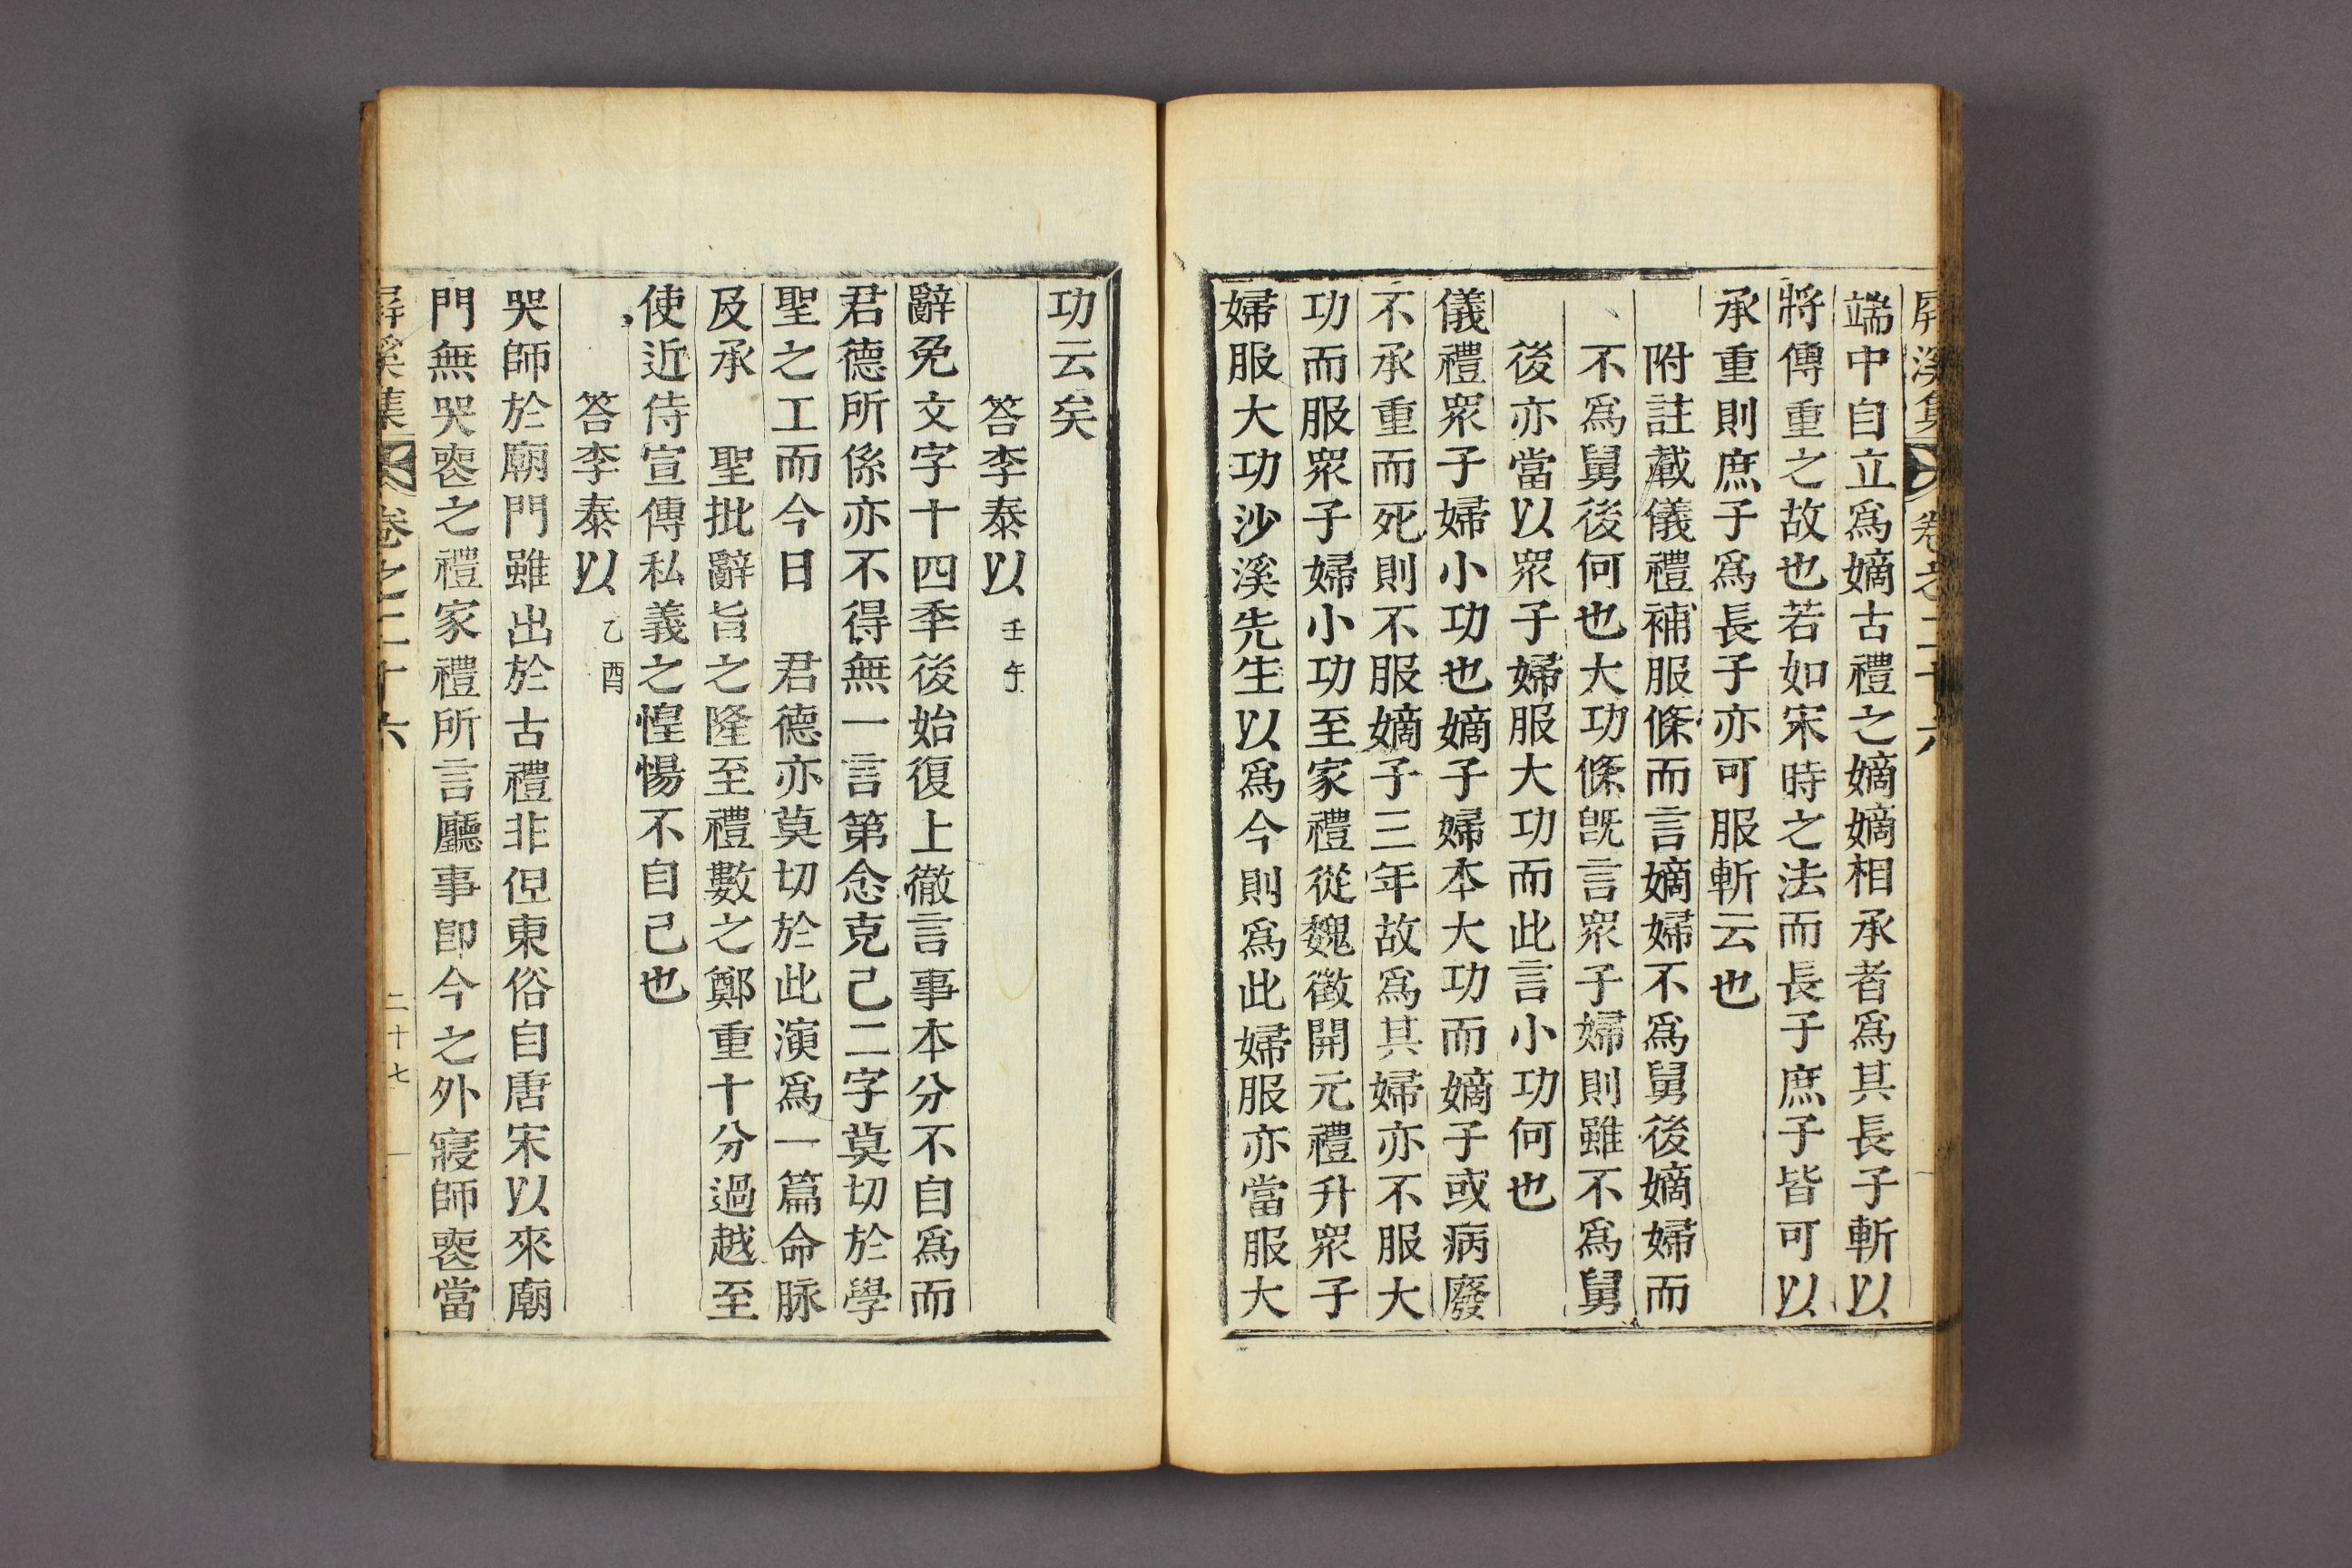 屛溪集 卷之二十六
端中自立爲嫡古禮之嫡嫡相承者爲其長子斬以
將傳重之故也若如宋時之法而長子庶子皆可以
承重則庶子爲長子亦可服斬云也
附註載儀禮補服條而言嫡婦不爲舅後嫡婦而
不爲舅後何也大功條旣言眾子婦則雖不爲舅
後亦當以眾子婦服大功而此言小功何也
儀禮眾子婦小功也嫡子婦本大功而嫡子或病廢
不承重而死則不服嫡子三年故爲其婦亦不服大
功而服眾子婦小功至家禮從魏徵開元禮升眾子
婦服大功沙溪先生以爲今則爲此婦服亦當服大
功云矣
答李泰以 壬午
辭免文字十四年後始復上徹言事本分不自爲而
君德所係亦不得無一言第念克己二字莫切於學
聖之工而今日 君德亦莫切於此演爲一篇命脉
及承 聖批辭旨之隆至禮數之鄭重十分過越至
使近侍宣傳私義之惶惕不自己也
答李泰以 乙酉
哭師於廟門雖出於古禮非但東俗自唐宋以來廟
門無哭喪之禮家禮所言廳事卽今之外寢師喪當
屛溪集 卷之二十六 二十七